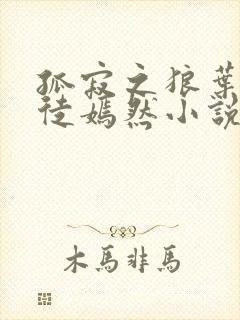 孤寂之狼葉
徒嫣然小說
木馬非馬